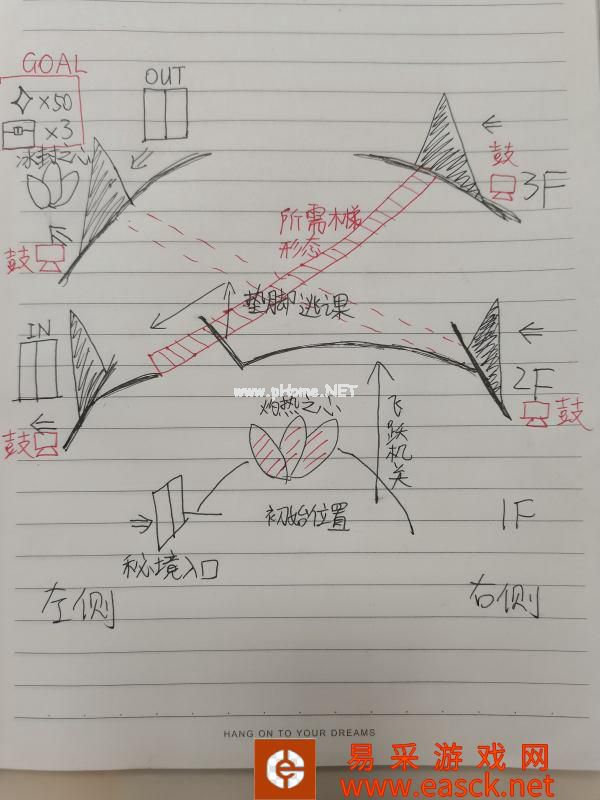 GOAL
OUT
×50
×3
冰封之心
鼓
3F
所需木梯
形态
鼓
垫脚逃课
IN
2F
鼓
鼓
www.pHome.NET
灼热之心
飞跃机关
初始位置
1F
秘境入口
左侧
右侧
HANG ON TO YOUR DREAMS
易采游戏网
www.easck.net